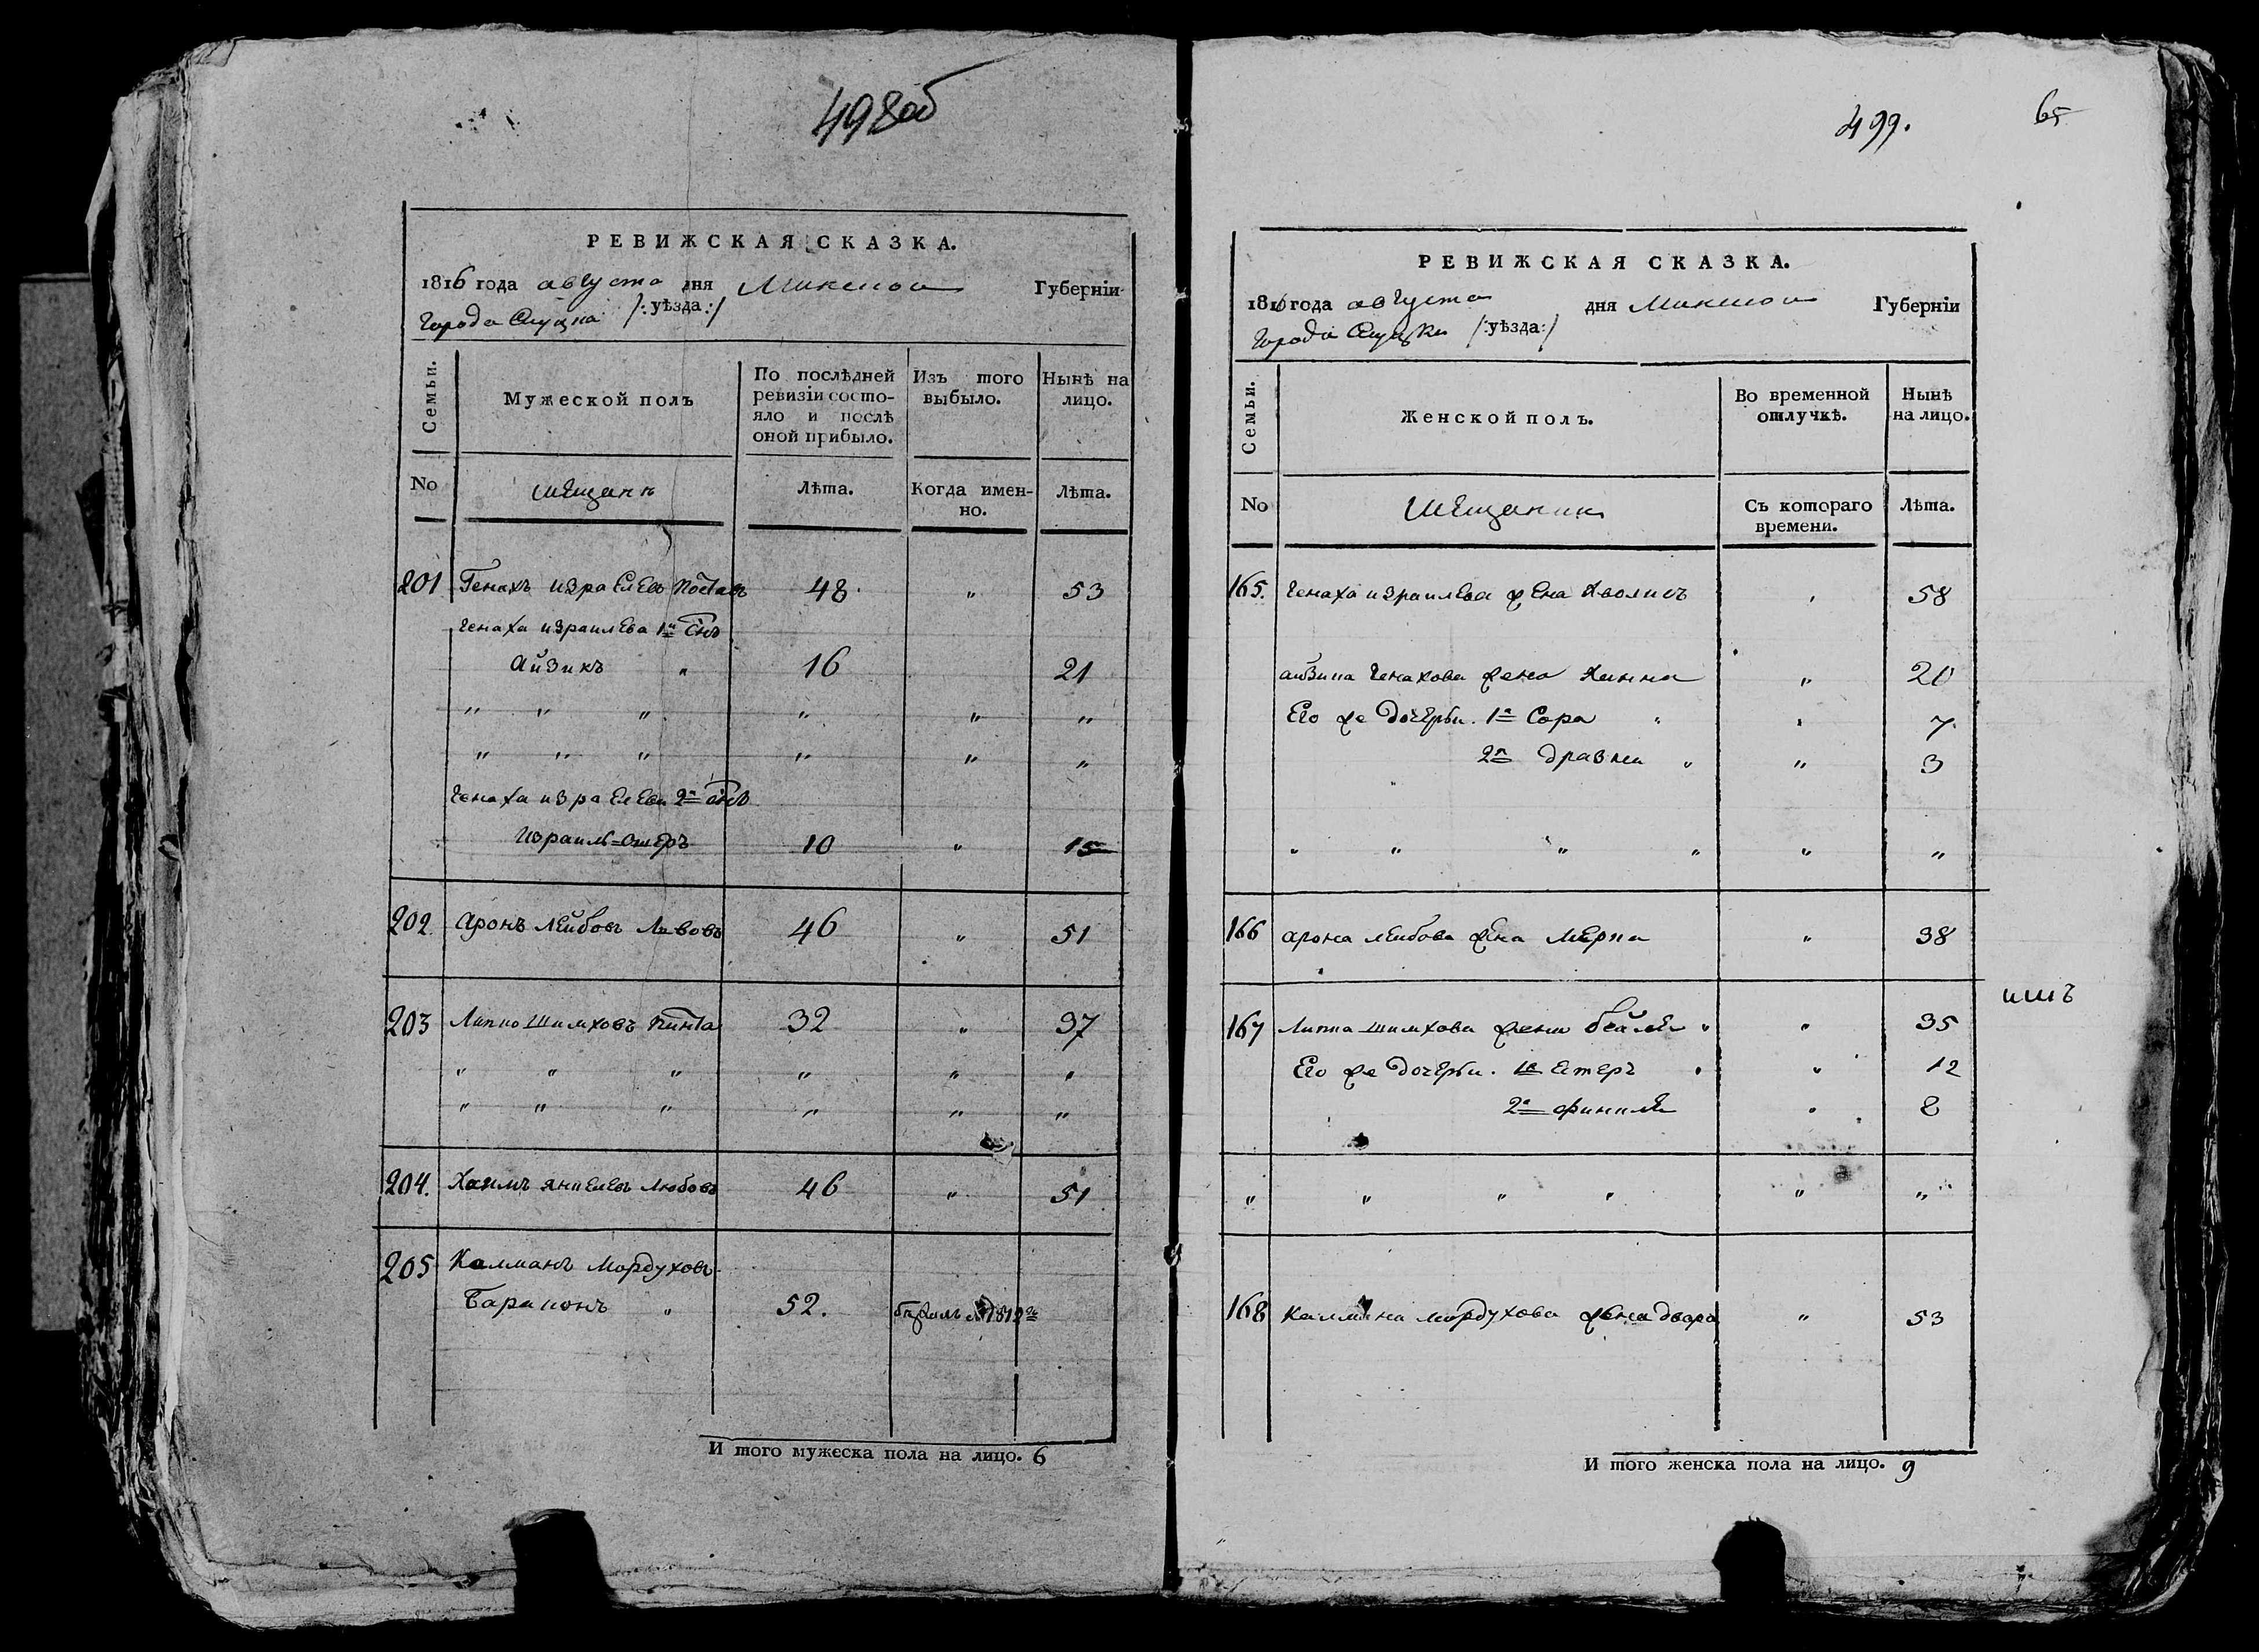 498об
РЕВИЖСКАЯ СКАЗКА.
1816 года августа дня Минской Губерніи
города Слуцка /:уѣзда:/
Семьи.
Мужеской полъ
По послѣдней ревизіи состояло и послѣ оной прибыло.
Изъ того выбыло.
Нынѣ на лицо.
No
мѣщанъ
Лѣта.
Когда именно.
Лѣта.
201 Генахъ израелевъ 48 " 53
Генаха израилева 1й сынъ
Айзикъ " 16 21
" " " " " "
" " " " " "
Генаха израелева 2й сынъ
Израиль 10 " 15
202 Аронъ лейбовъ 46 " 51
203 Липко Шимховъ Пинта 32 " 37
" " " " " "
" " " " " "
204. Хаимъ янкелевъ Любовъ 46 " 51
205 Калманъ Мордуховъ
" 52. 1812
И того мужеска пола на лицо. 6
499.
65
РЕВИЖСКАЯ СКАЗКА.
1816 года августа дня Минской Губерніи
города Слуцка /:уѣзда:/
Семьи.
Женской полъ.
Во временной отлучкѣ.
Нынѣ на лицо.
No
Съ котораго времени.
Лѣта.
165. Генаха израилева жена " 58
айзика Генахова жена Ханна " 20
Его же дочерьи. 1я Сора " " 7
2я " " 3
" " " " " "
166 арона лейбова жена Мерка " 38
167 Липка шимхова жена бейля " " 35
Его же дочерьи. 1я Естеръ " " 12
2я " 8
" " " " " "
168 калмана мордухова жена двора " 53
И того женска пола на лицо. 9